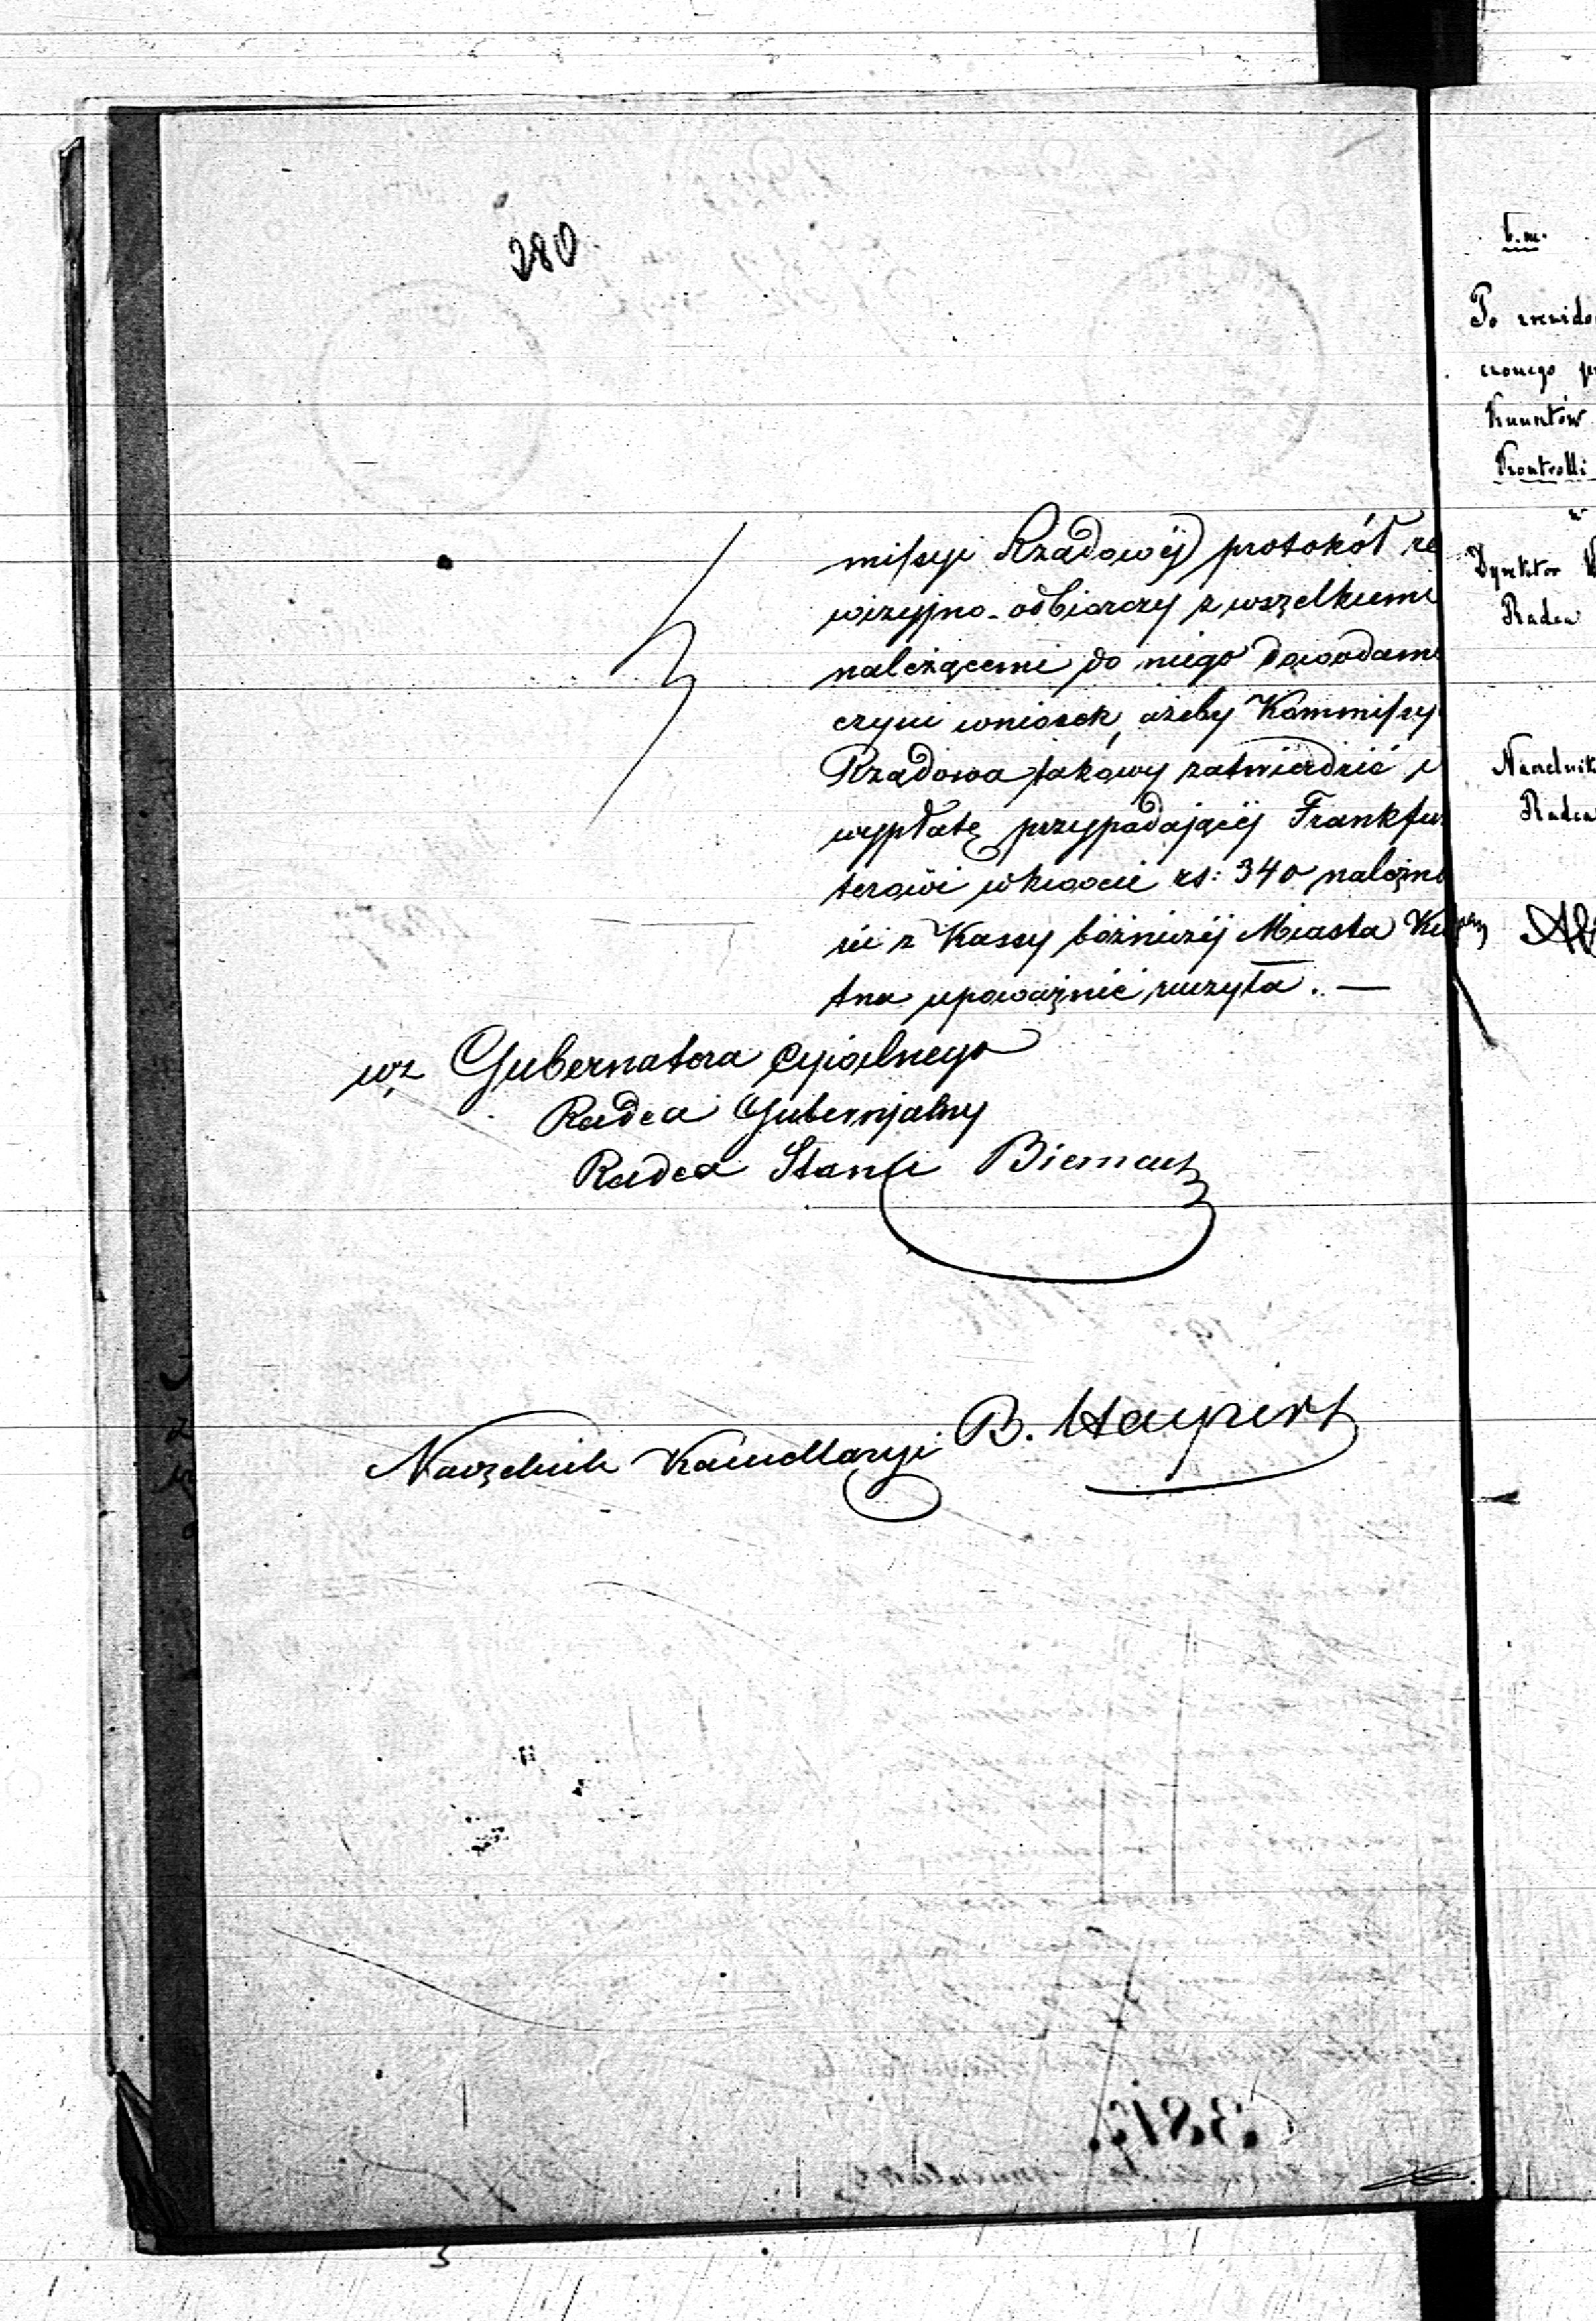 280
missyi Rządowéj protokół re
wizyjno-odbiorczy z wszelkiemi
należącemi do niego dowodami
czyni wniosek, ażeby Kommissy
Rządowa takowy zatwierdzić i
wypłatę przypadającéj Frankfur
terowi w kwocie rs: 340 należno
ści z Kassy bóżniczéj Miasta Ku
tna upoważnić raczyła. —
wz Gubernatora Cywilnego
Radca Gubernjalny
Radca Stanu
Naczelnik Kancellaryi B.
b.m.
Po
czonego
Kontrolli
Dyrektor
Radca
Naczelnik
Radca
3819.